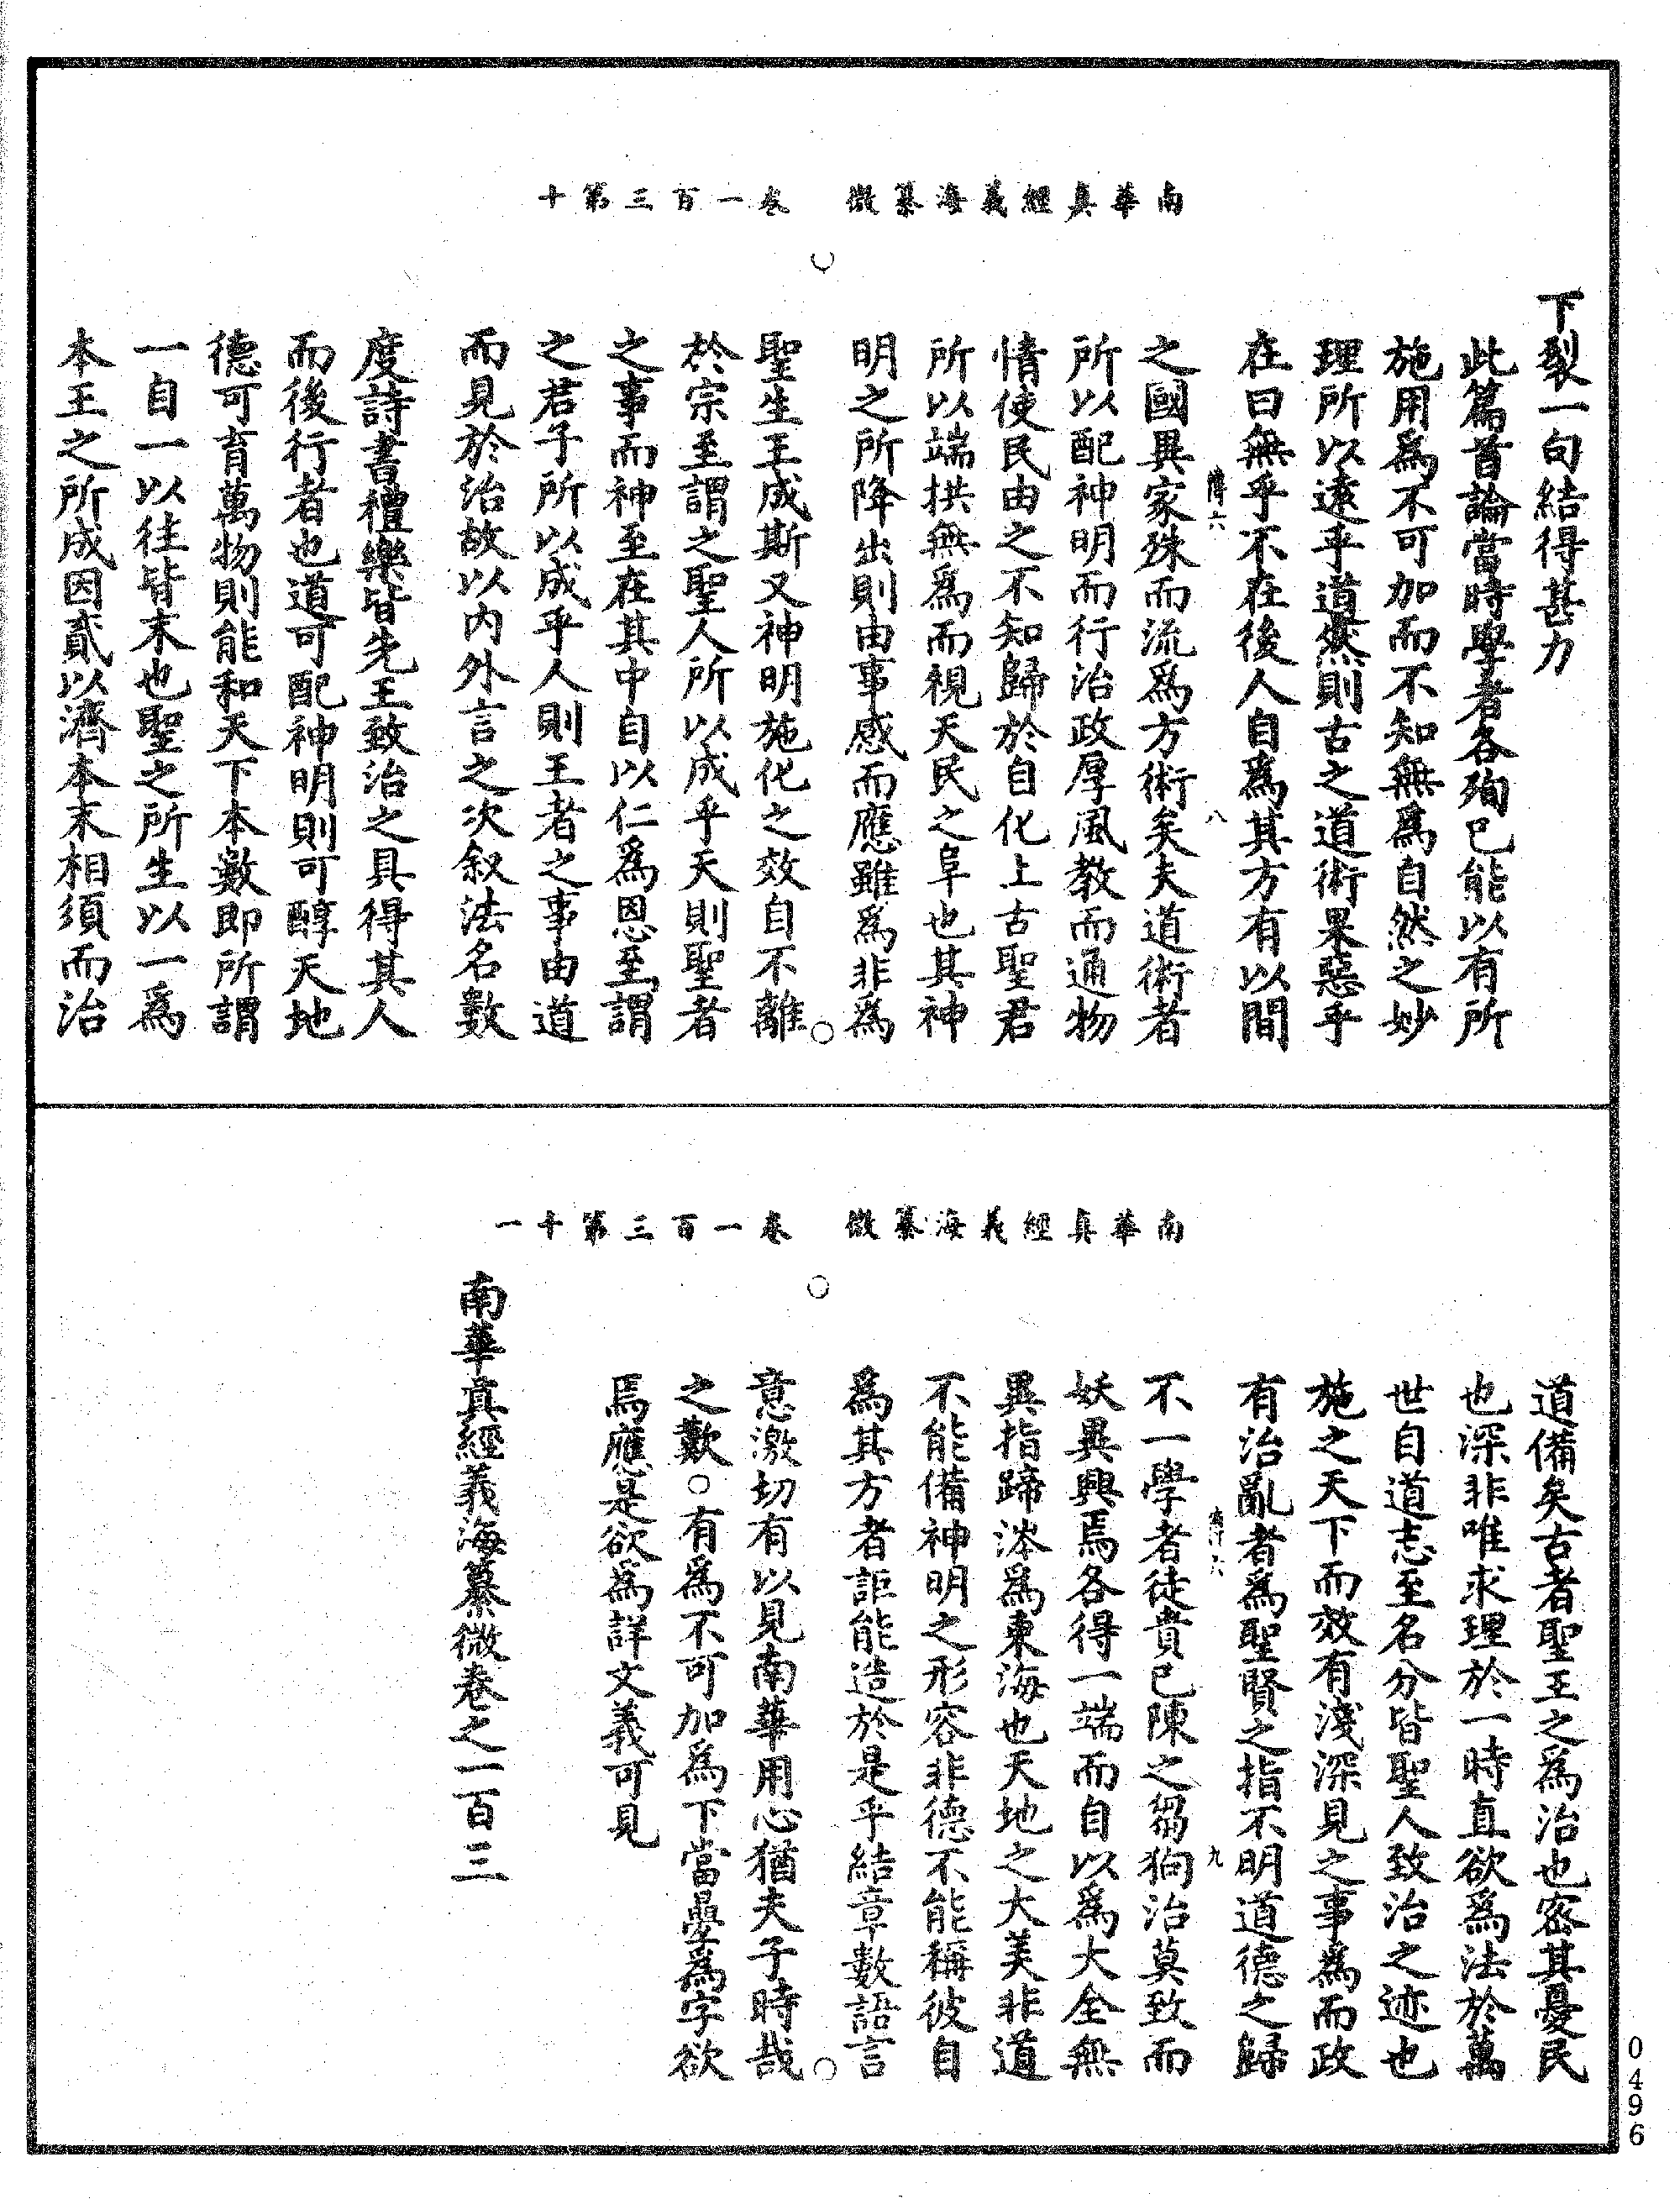 南華真經義海纂微　卷一百三第十
下裂一句結得甚力
此篇首論當時學者各殉己能以有所
施用為不可加而不知無為自然之妙
理所以遠乎道然則古之道術果惡乎
在曰無乎不在後人自為其方有以間
八
之國異家殊而流為方術矣夫道術者
所以配神明而行治政厚風教而通物
情使民由之不知歸於自化上古聖君
所以端拱無為而視天民之阜也其神
明之所降出則由事感而應雖為非為
聖生王成斯又神明施化之效自不離
於宗至謂之聖人所以成乎天則聖者
之事而神至在其中自以仁為恩至謂
之君子所以成乎人則王者之事由道
而見於治故以內外言之次叙法名數
度詩書禮樂皆先王致治之具得其人
而後行者也道可配神明則可醇天地
德可育萬物則能和天下本數即所謂
一自一以往皆末也聖之所生以一為
本王之所成因貳以濟本末相須而治
南華真經義海纂微　卷一百三第十一
道備矣古者聖王之為治也密其憂民
也深非唯求理於一時直欲為法於萬
世自道志至名分皆聖人致治之迹也
施之天下而效有淺深見之事為而政
有治亂者為聖賢之指不明道德之歸
九
不一學者徒貴已陳之芻狗治莫致而
妖異興焉各得一端而自以為大全無
異指蹄涔為東海也天地之大美非道
不能備神明之形容非德不能稱彼自
為其方者詎能造於是乎結章數語言
意激切有以見南華用心猶夫子時哉
之歎○有為不可加為下當疊為字欲
焉應是欲為詳文義可見
南華真經義海纂微卷之一百三
0496